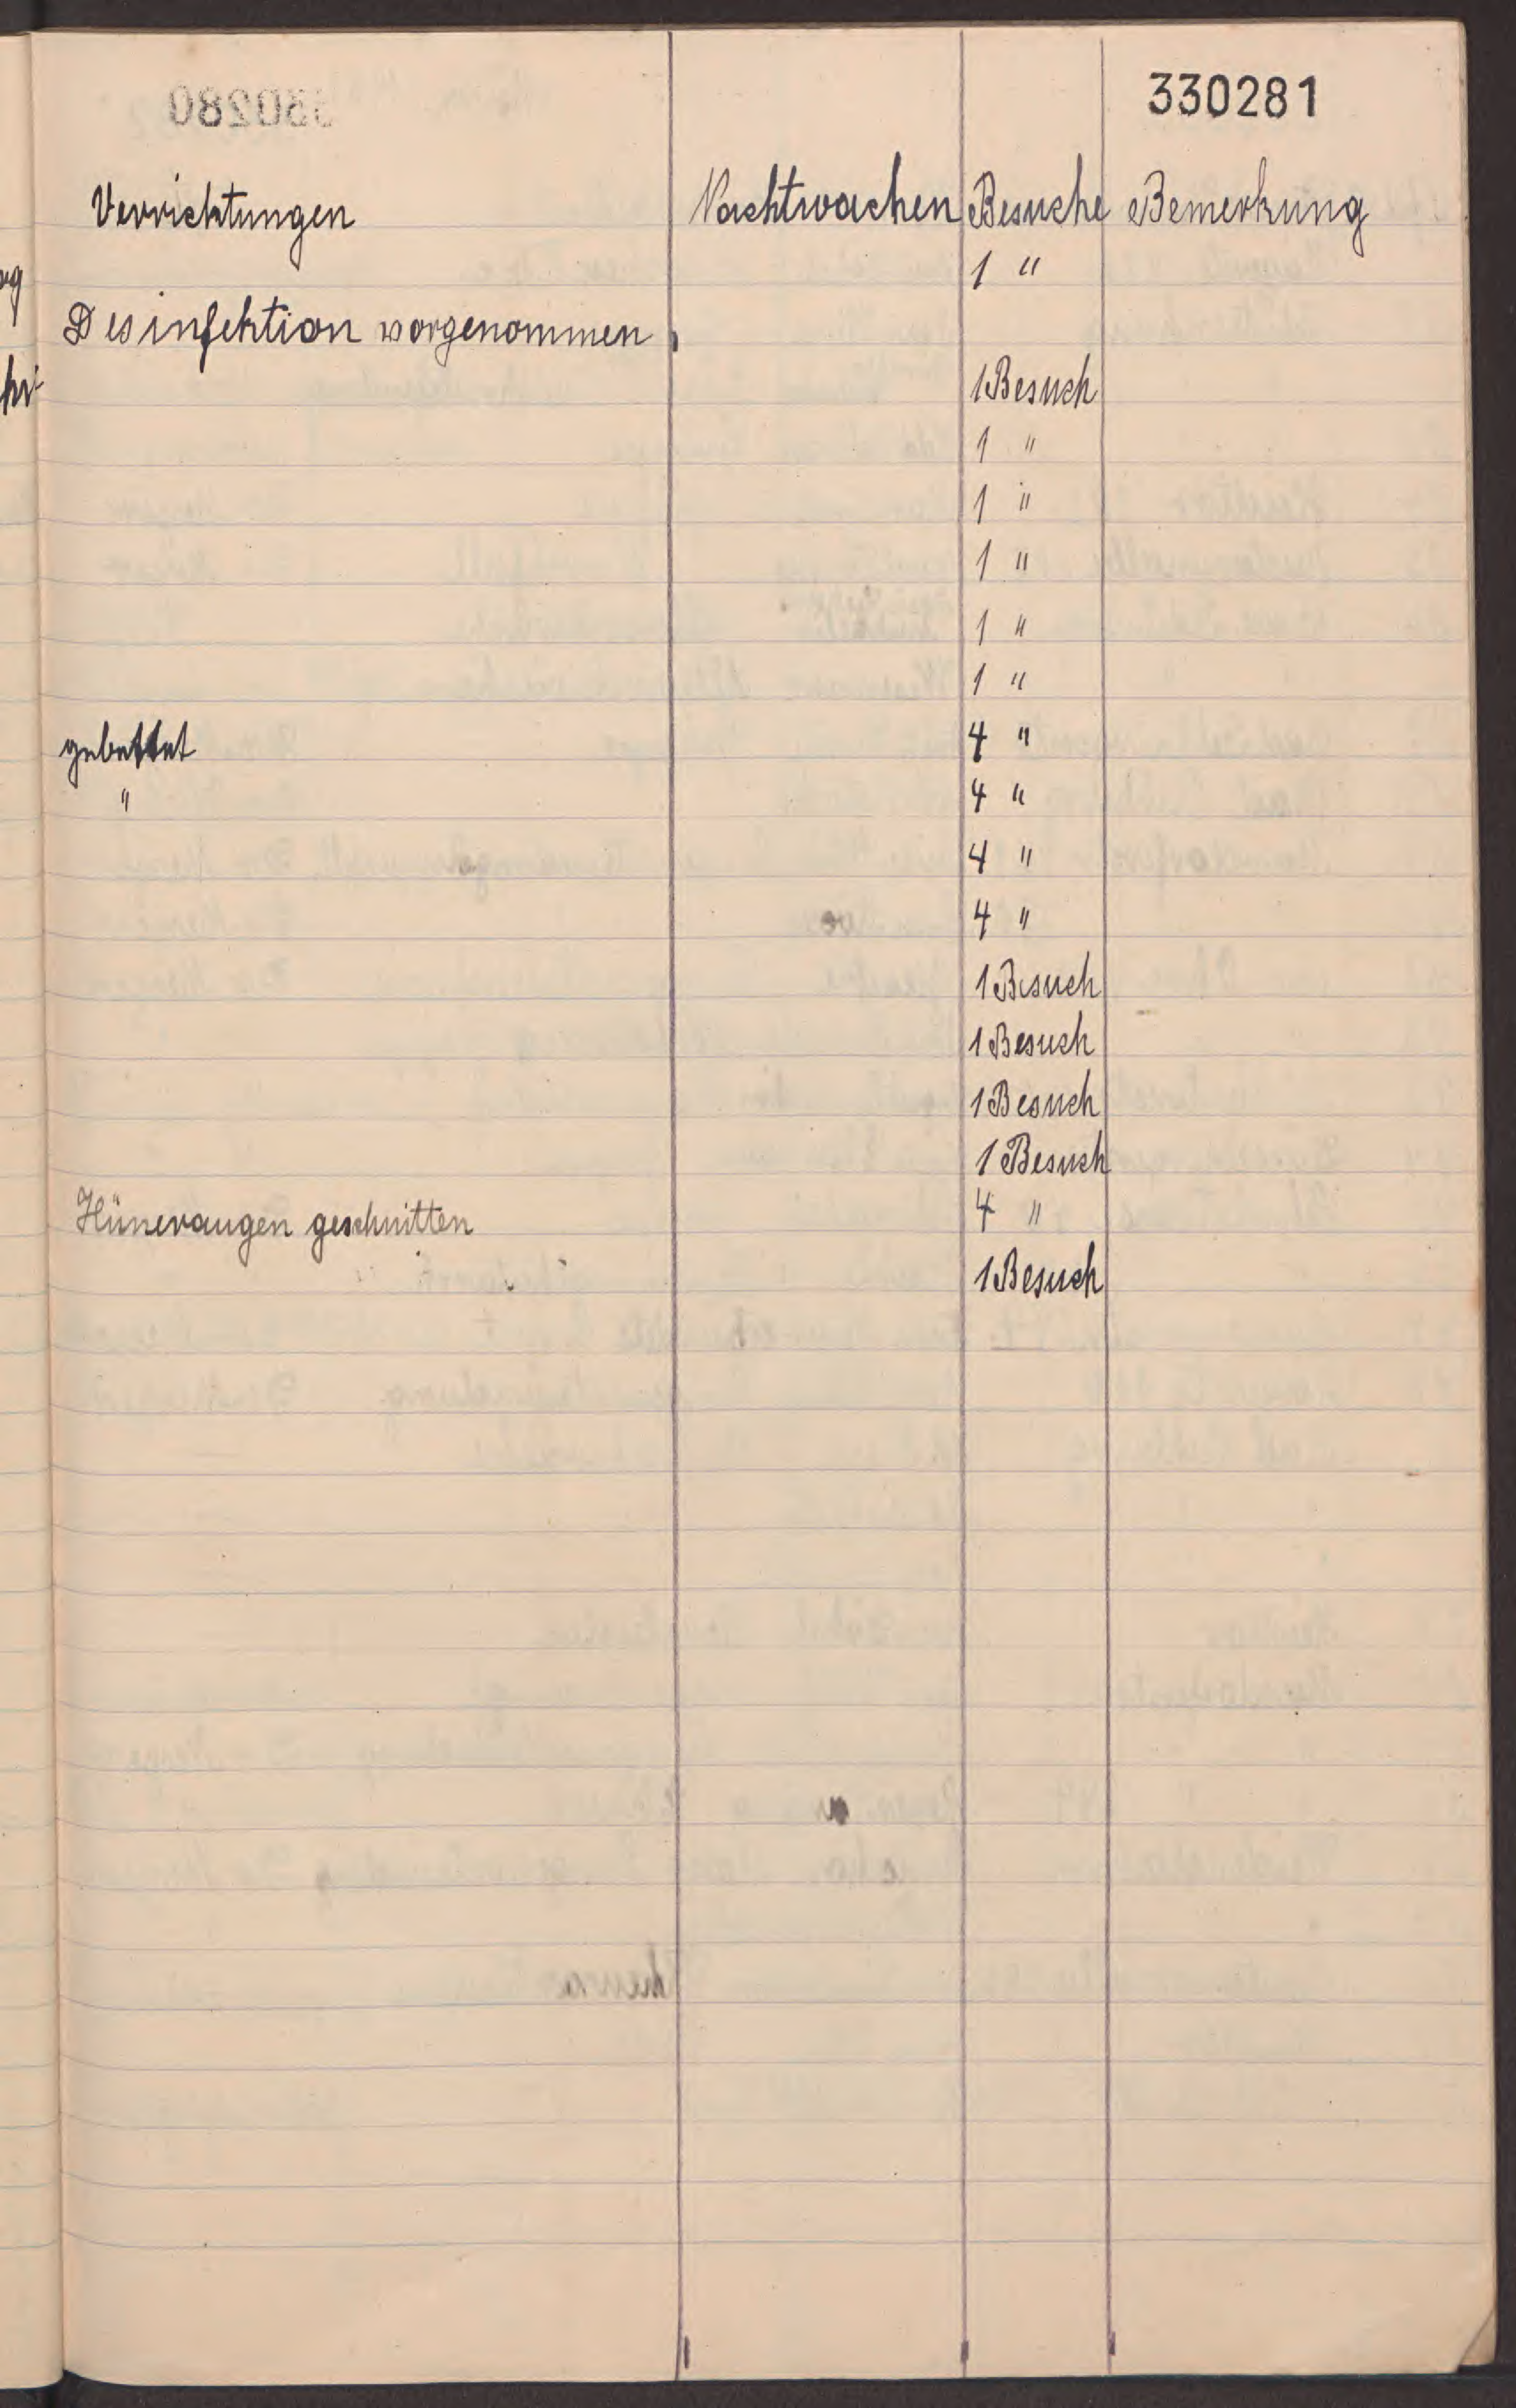 330281
Verrichtungen Nachtwachen Besuche Bemerkung
1 "
Desinfektion vorgenommen
1 Besuch
1 "
1 "
1 "
1 "
1 "
gebettet 4 "
" 4 "
4 "
4 "
1 Besuch
1 Besuch
1 Besuch
1 Besuch
Hüneraugen geschnitten 4 "
1 Besuch